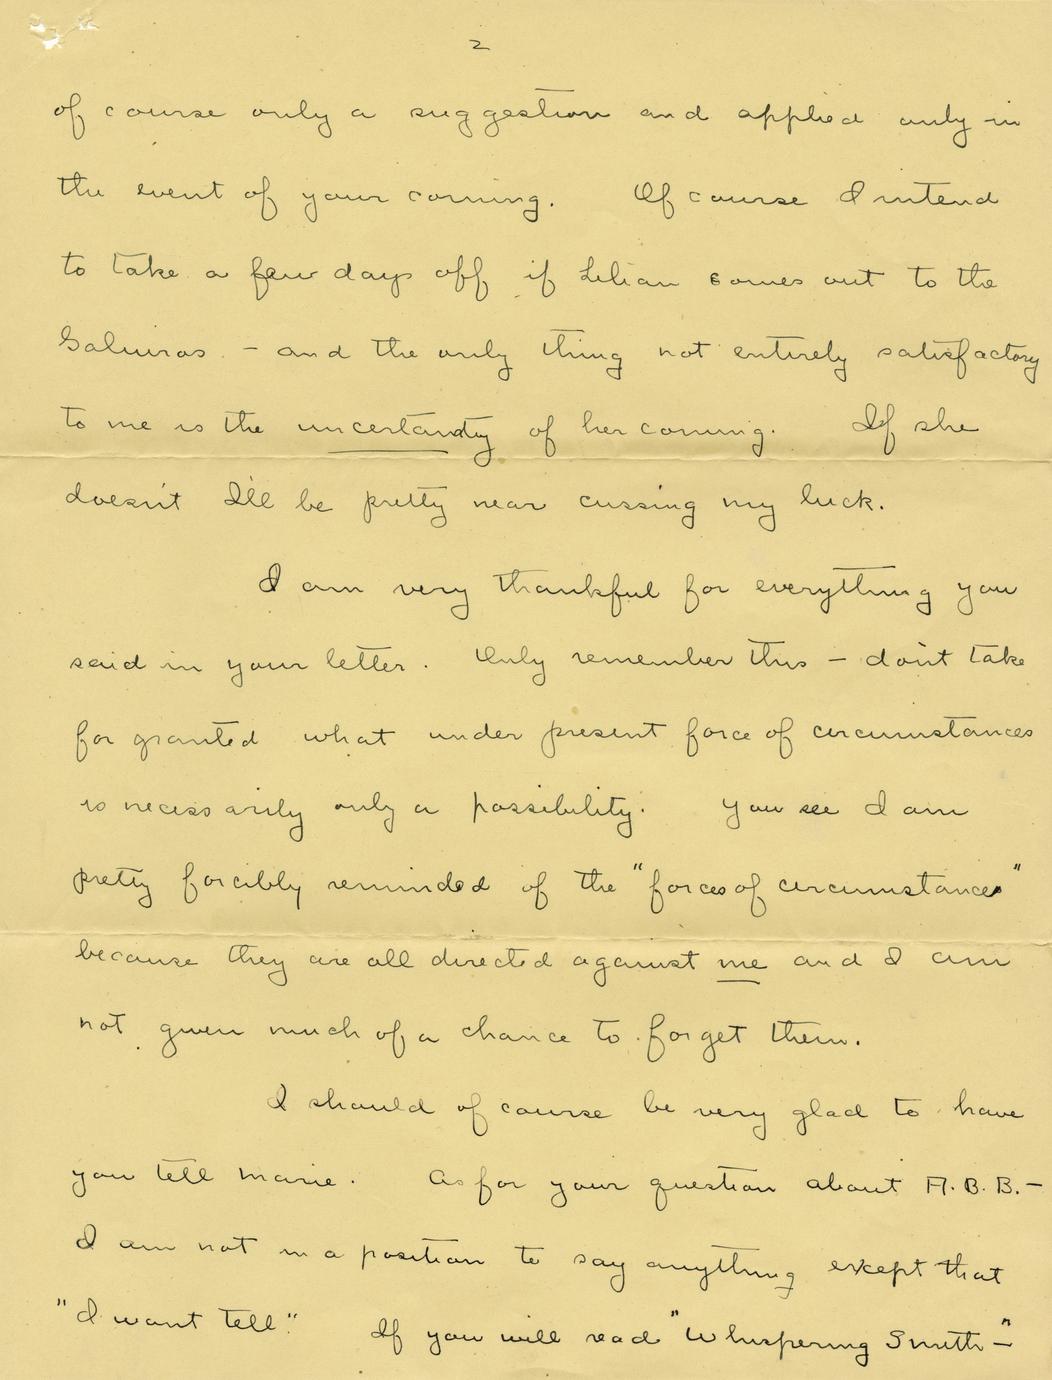 2
of course only a suggestion and applied only in
the event of your coming. Of course I intend
to take a few days off if Lilian comes out to the
Salinas - and the only thing not entirely satisfactory
to me is the uncertainty of her coming. If she
doesn't I'll be pretty near cussing my luck.
I am very thankful for everything you
said in your letter. Only remember this - don't take
for granted what under present force of circumstances
is necessarily only a possibility. You see I am
pretty forcibly reminded of the "forces of circumstances"
because they are all directed against me and I am
not given much of a chance to forget them.
I should of course be very glad to have
you tell Marie. As for your question about A. B. B. -
I am not in a position to say anything except that
"I want tell." If you will read "Whispering Smith -"